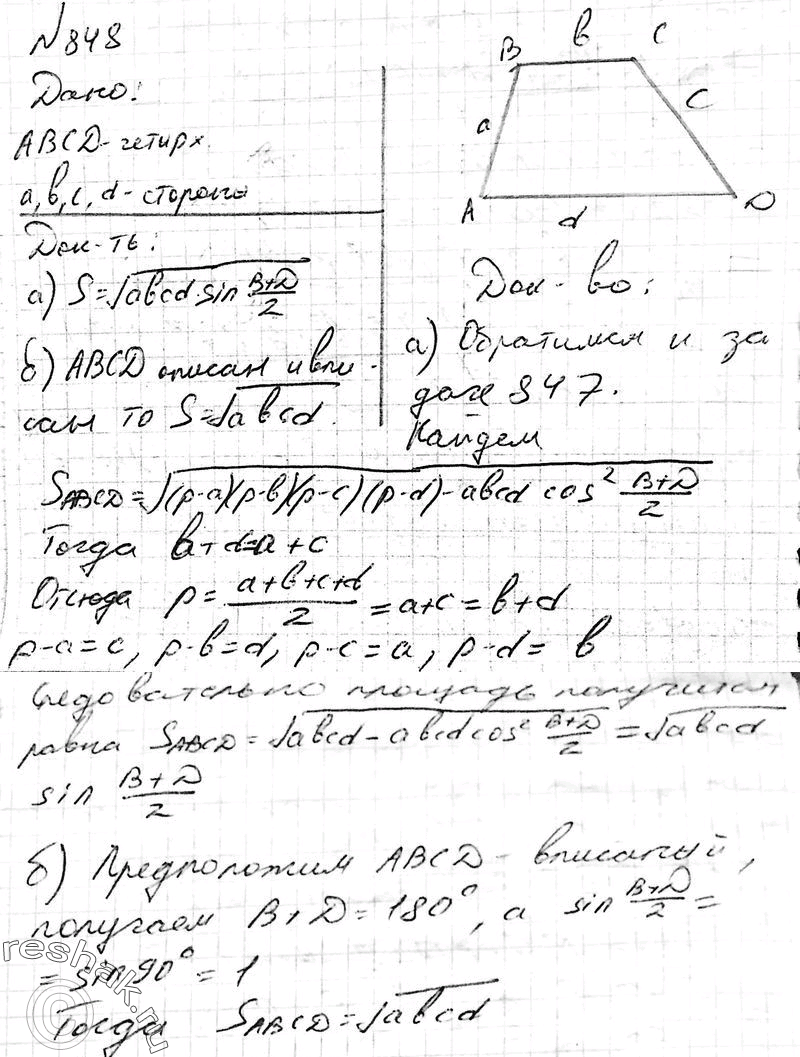 №848
Дано:
ABCD-четирх.
a, b, c, d - сторона
Док-ть:
а) S=√abcd·sin (B+D)/2
б) ABCD описан и впи-
сан то S=√abcd.
B b C
a c
A d D
Док-во:
а) Обратимся и за
даче 847.
Найдем
S_ABCD=√(p-a)(p-b)(p-c)(p-d)-abcd cos² (B+D)/2
Тогда b+d=a+c
Отсюда p=(a+b+c+d)/2=a+c=b+d
p-a=c, p-b=d, p-c=a, p-d=b
следовательно площадь получится
равна S_ABCD=√abcd-abcdcos² (B+D)/2=√abcd
sin (B+D)/2
б) Предположим ABCD-вписаный,
получаем B+D=180°, а sin (B+D)/2=
=sin90°=1
Тогда S_ABCD=√abcd
reshak.ru